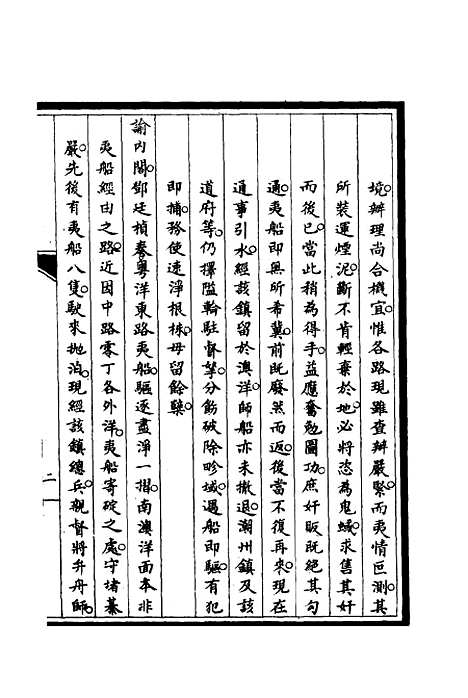 境。辦理尚合機宜。惟各路現雖查辦嚴緊。而夷情叵測。其
所裝運煙泥。斷不肯輕棄於地。必將恣為鬼蜮。求售其奸
而後已。當此稍為得手。益應奮勉圖功。庶奸販既絕其勾
通。夷船即無所希冀。前既廢然而返。後當不復再來。現在
通事引水。經該鎮留於澳洋。師船亦未撤退。潮州鎮及該
道府等。仍擇隘輪駐督率。分飭破除畛域。遇船即驅。有犯
即捕。務使速淨根株。毋留餘孽。
諭內閣。鄧廷楨奏。粵洋東路夷船。驅逐盡淨一摺。南澳洋面。本非
夷船經由之路。近因中路零丁各外洋。夷船寄碇之處。守堵綦
嚴。先後有夷船八隻。駛來拋泊。現經該鎮總兵。親督將弁舟師。
二